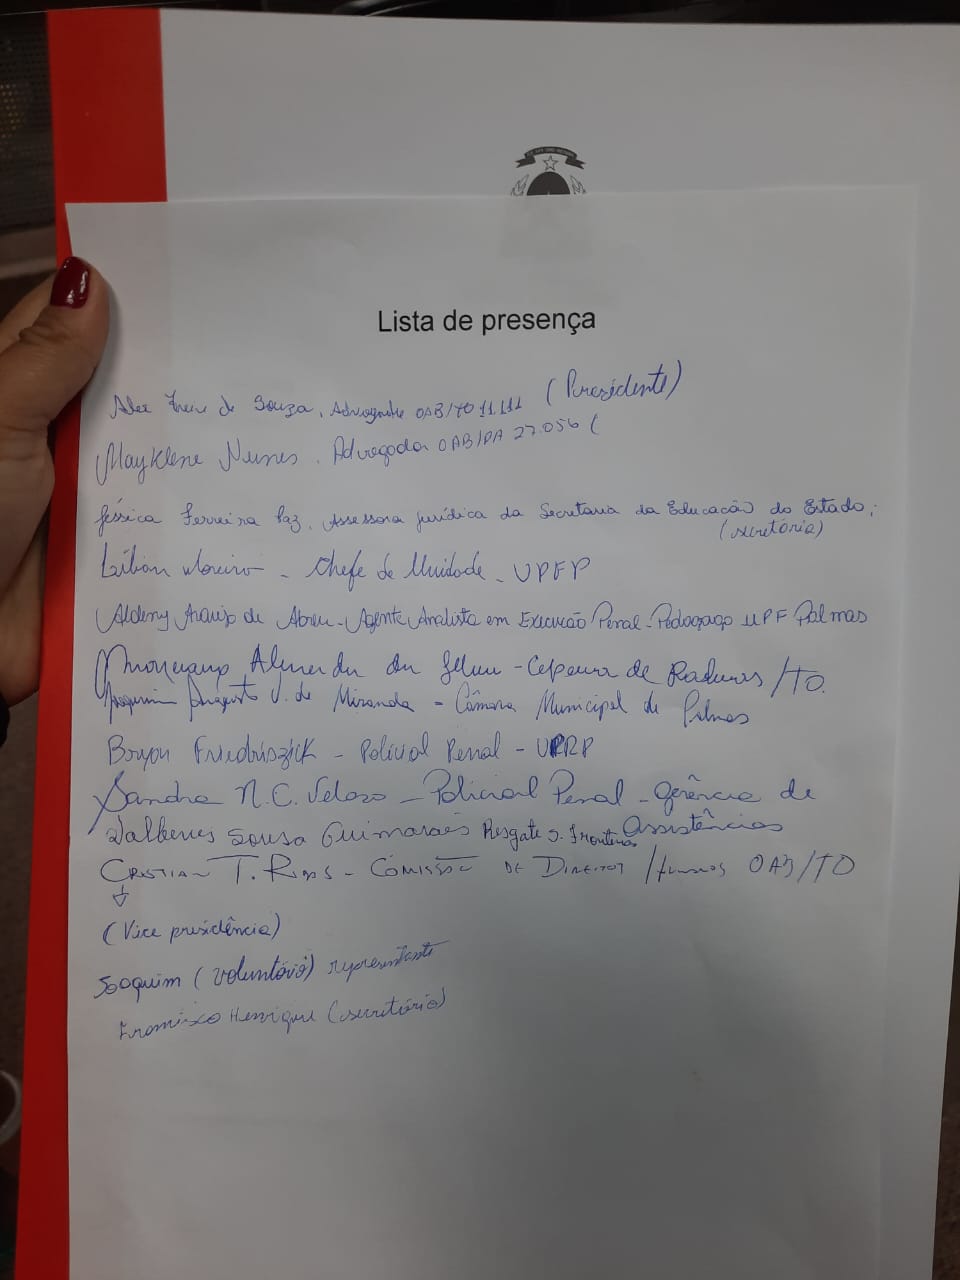 Lista de presença
Alex Freire de Souza, Advogado OAB/TO 11.111 (Presidente)
Mayklene Nunes. Advogada OAB/PA 27.056 (
Jéssica Ferreira Paz, Assessora jurídica da Secretaria da Educação do Estado;
(secretária)
Lilian - Chefe de Unidade - UPFP
Aldeny Araujo de Abreu - Agente Analista em Execução Penal - Pedagogo UPF Palmas
Almeida da - de /TO.
Joaquim Augusto de Miranda - Câmara Municipal de Palmas
Friedriszik - Policial Penal -
Sandra M. C. Veloso - Policial Penal - Gerência de
Assistências
Sousa Guimarães Resgate s. Fronteiras
Cristian T. - Comissão de Direitos Humanos OAB/TO
↓
(Vice presidência)
Joaquim (voluntário) representante
Francisco Henrique (secretário)